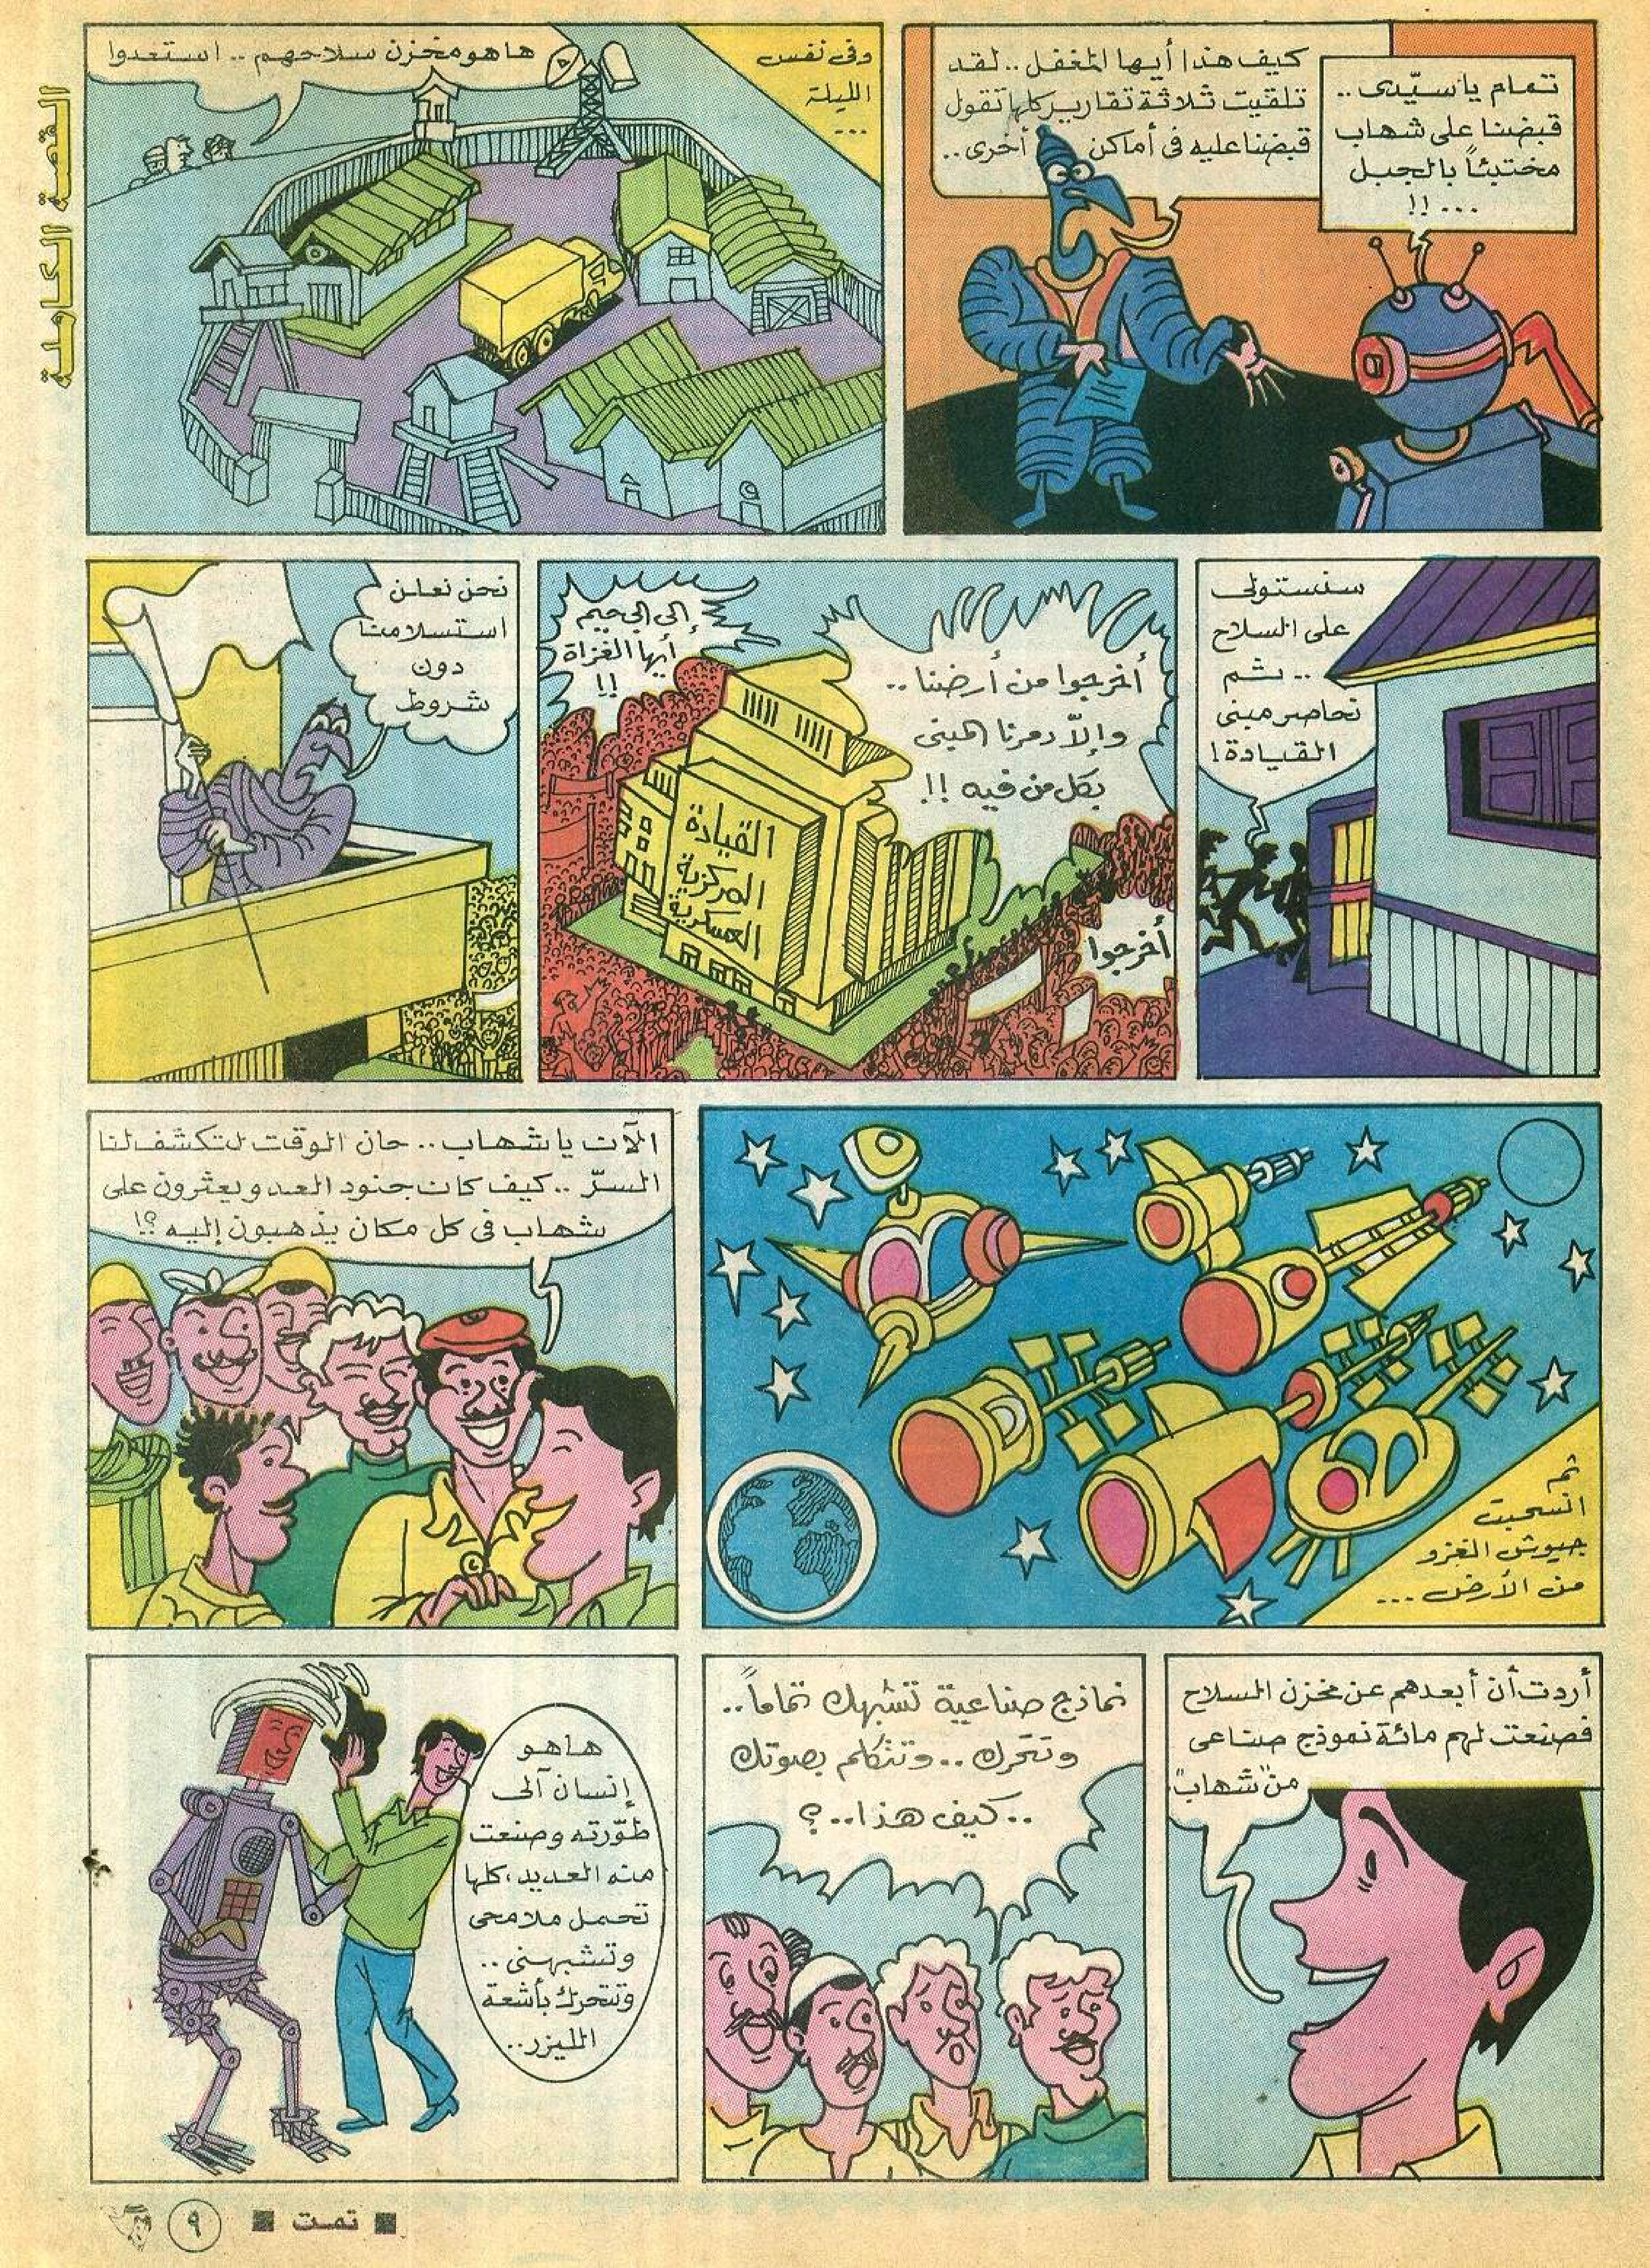 القصة الكاملة
تمام يا سيّدى ..
قبضنا على شهاب
مختبئاً بالجبل
... !!
كيف هذا أيها المغفل .. لقد
تلقيت ثلاثة تقارير كلها تقول
قبضنا عليه فى أماكن أخرى ..
وفى نفس
الليلة
...
ها هو مخزن سلاحهم .. استعدوا
سنستولى
على السلاح
.. ثم
نحاصر مبنى
القيادة !
أخرجوا من أرضنا ..
وإلاّ دمرنا المبنى
بكل من فيه !!
إلى الجحيم
أيها الغزاة
!!
القيادة
المركزية
العسكرية
أخرجوا
نحن نعلن
استسلامنا
دون
شروط
ثم
انسحبت
جيوش الغزو
من الأرض ...
الآن يا شهاب .. حان الوقت لتكشف لنا
السرّ .. كيف كان جنود العدو يعثرون على
شهاب فى كل مكان يذهبون إليه ؟!
أردت أن أبعدهم عن مخزن السلاح
فصنعت لهم مائة نموذج صناعى
من "شهاب"
نماذج صناعية تشبهك تماماً ..
وتتحرك .. وتتكلم بصوتك
.. كيف هذا .. ؟
ها هو
إنسان آلى
طوّرته وصنعت
منه العديد، كلها
تحمل ملامحى
وتشبهنى ..
وتتحرك بأشعة
الليزر ..
■ تمت ■
٩